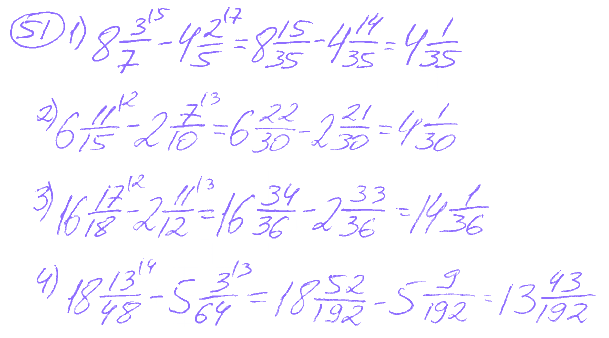 51 1) 8 3/7 ^5 - 4 2/5 ^7 = 8 15/35 - 4 14/35 = 4 1/35
2) 6 11/15 ^2 - 2 7/10 ^3 = 6 22/30 - 2 21/30 = 4 1/30
3) 16 17/18 ^2 - 2 11/12 ^3 = 16 34/36 - 2 33/36 = 14 1/36
4) 18 13/48 ^4 - 5 3/64 ^3 = 18 52/192 - 5 9/192 = 13 43/192